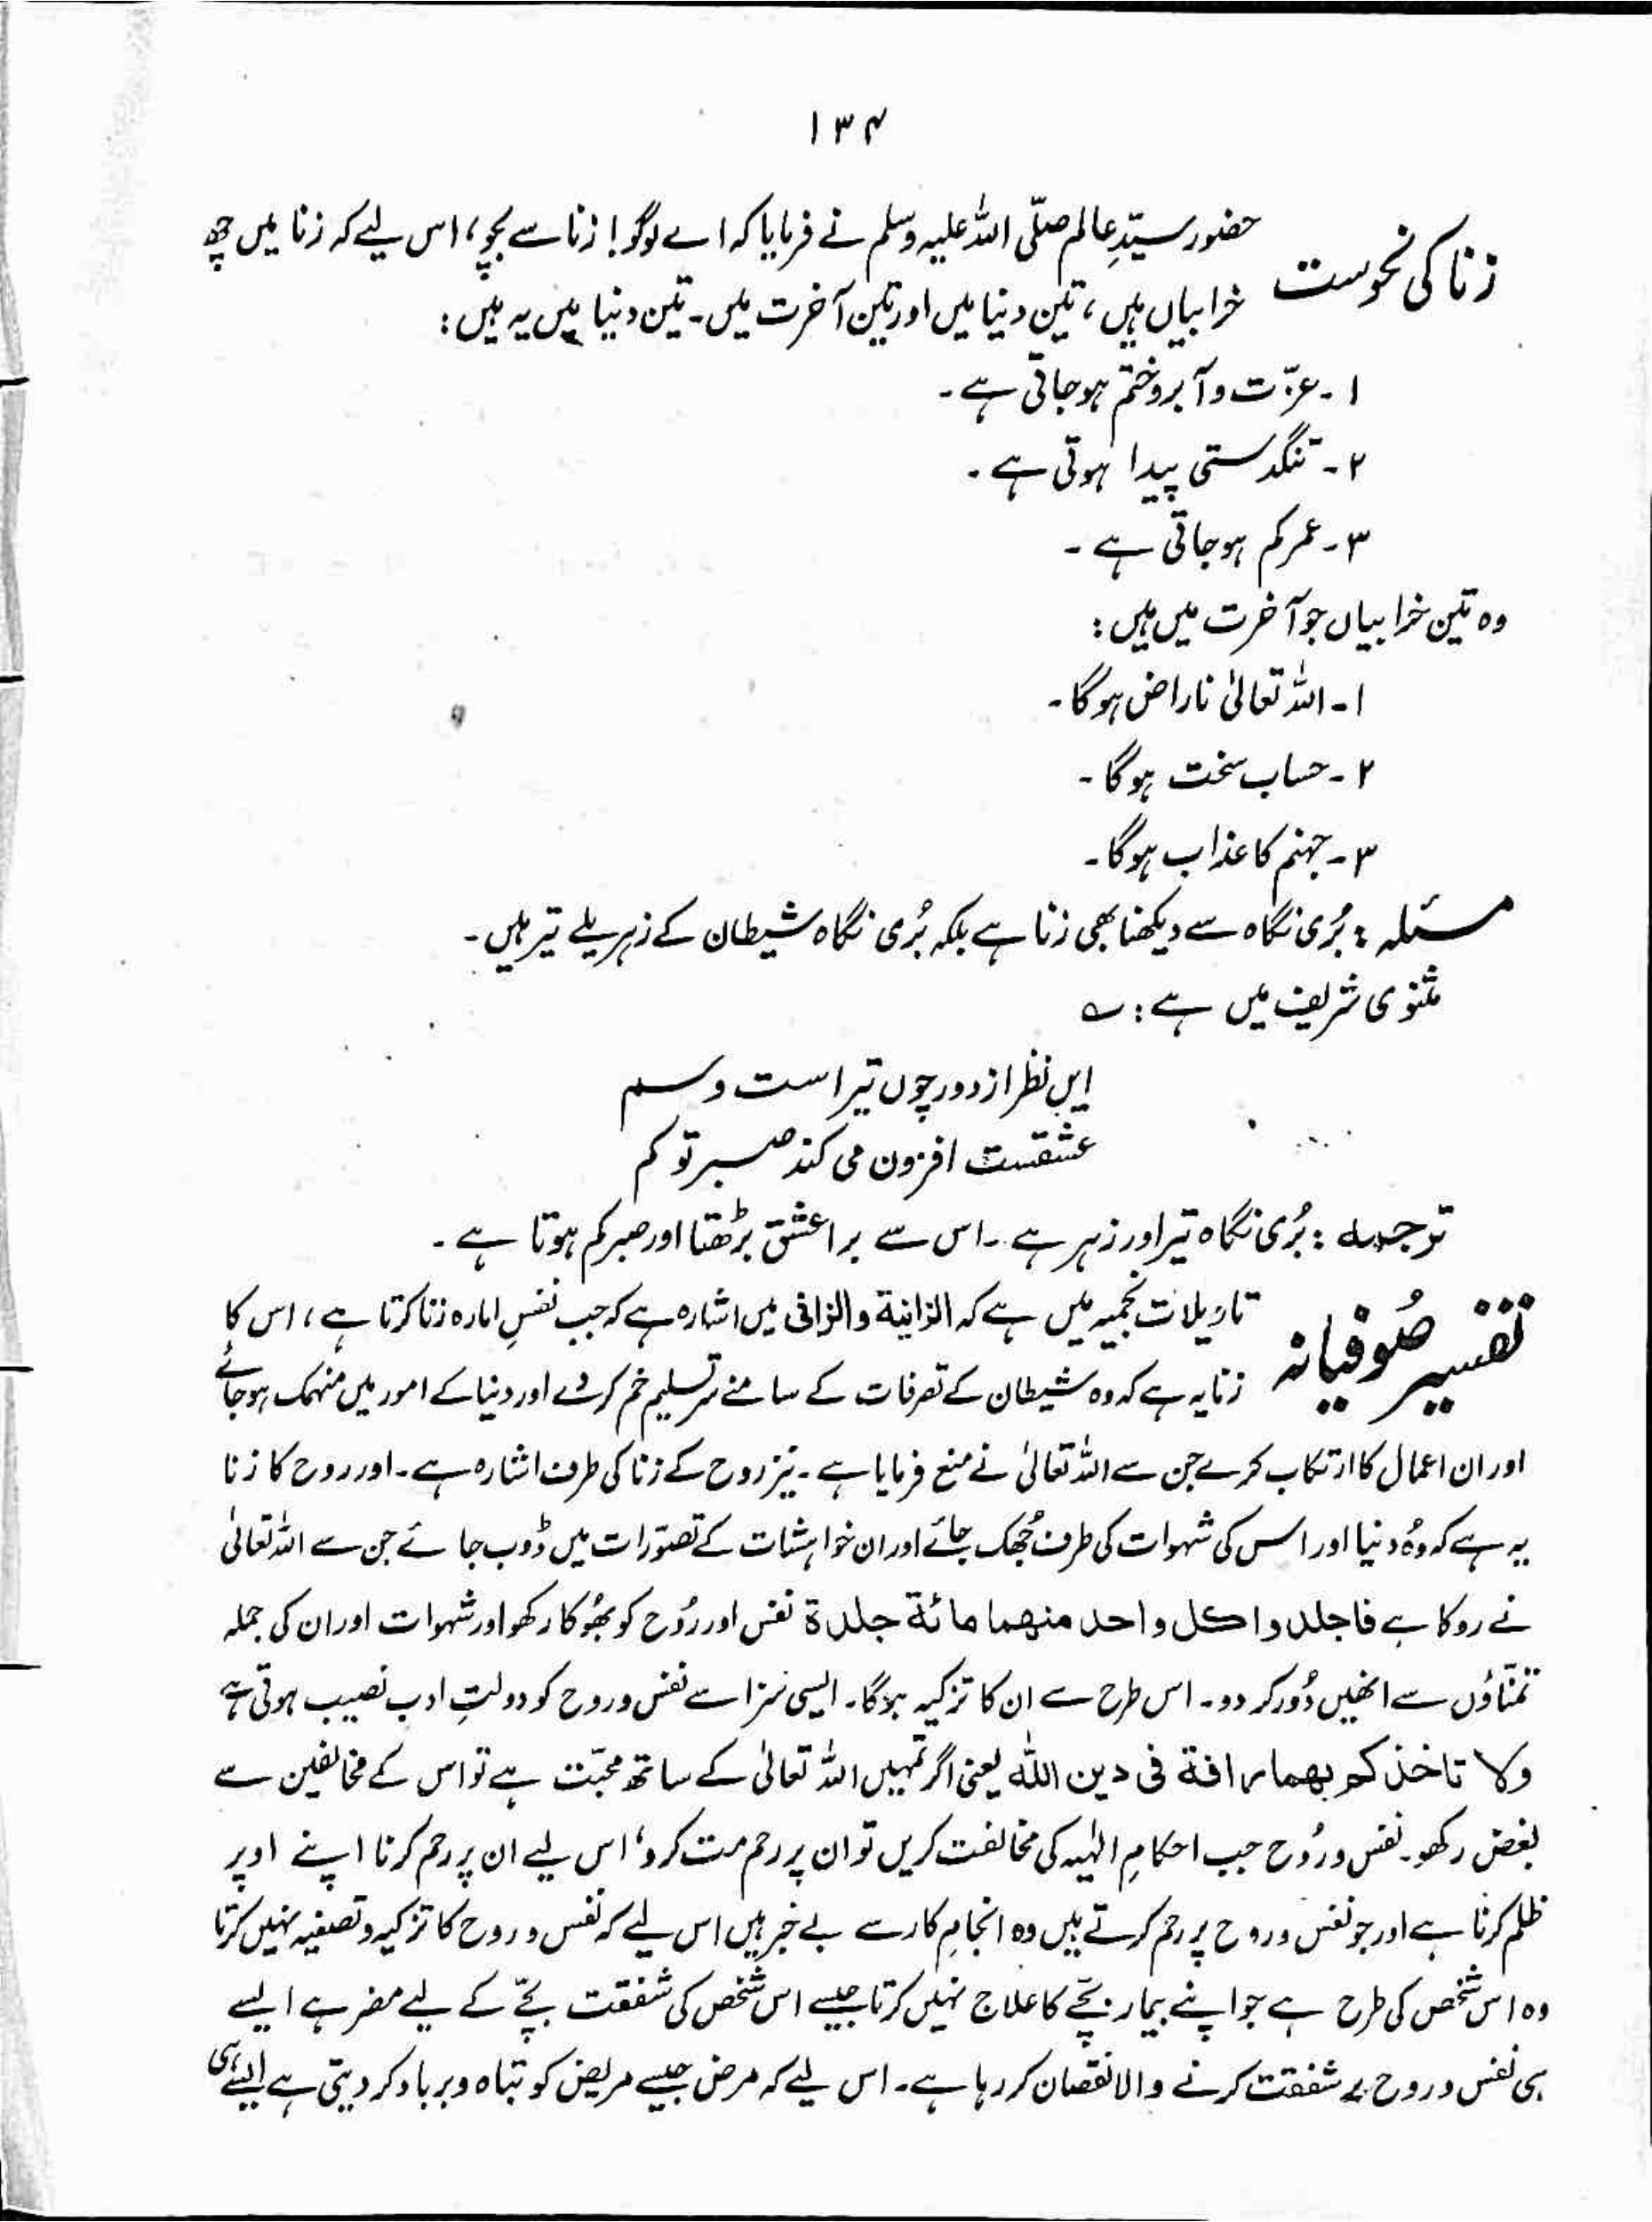 ۱۳۴
زنا کی نحوست
حضور سیّدِ عالم صلّی اللہ علیہ وسلم نے فرمایا کہ اے لوگو! زنا سے بچو، اس لیے کہ زنا میں چھ
خرابیاں ہیں، تین دنیا میں اور تین آخرت میں۔ تین دنیا میں یہ ہیں:
۱۔ عزّت و آبرو ختم ہوجاتی ہے۔
۲۔ تنگدستی پیدا ہوتی ہے۔
۳۔ عمر کم ہوجاتی ہے۔
وہ تین خرابیاں جو آخرت میں ہیں:
۱۔ اللہ تعالیٰ ناراض ہوگا۔
۲۔ حساب سخت ہوگا۔
۳۔ جہنم کا عذاب ہوگا۔
مسئلہ: بُری نگاہ سے دیکھنا بھی زنا ہے بلکہ بُری نگاہ شیطان کے زہریلے تیر ہیں۔
مثنوی شریف میں ہے: ؎
ایں نظر از دور چوں تیر است و سم
عشقست افزون می کند صبر تو کم
ترجمہ: بُری نگاہ تیر اور زہر ہے۔ اس سے برا عشق بڑھتا اور صبر کم ہوتا ہے۔
تفسیر صُوفیانہ
تاویلات نجمیہ میں ہے کہ الزانیة والزانی میں اشارہ ہے کہ جب نفسِ امارہ زنا کرتا ہے، اس کا
زنا یہ ہے کہ وہ شیطان کے تصرفات کے سامنے سرِ تسلیم خم کر دے اور دنیا کے امور میں منہمک ہوجائے
اور ان اعمال کا ارتکاب کرے جن سے اللہ تعالیٰ نے منع فرمایا ہے۔ نیز روح کے زنا کی طرف اشارہ ہے۔ اور روح کا زنا
یہ ہے کہ وُہ دنیا اور اس کی شہوات کی طرف جُھک جائے اور ان خواہشات کے تصوّرات میں ڈوب جائے جن سے اللہ تعالیٰ
نے روکا ہے فاجلدوا کل واحد منهما مائة جلدة نفس اور رُوح کو بھُوکا رکھو اور شہوات اور ان کی جملہ
تمنّاؤں سے انھیں دُور کر دو۔ اس طرح سے ان کا تزکیہ ہوگا۔ ایسی سزا سے نفس و روح کو دولتِ ادب نصیب ہوتی ہے
ولا تاخذکم بهما رافة فی دین اللّٰه یعنی اگر تمہیں اللہ تعالیٰ کے ساتھ محبّت ہے تو اس کے مخالفین سے
بغض رکھو۔ نفس و رُوح جب احکامِ الٰہیہ کی مخالفت کریں تو ان پر رحم مت کرو، اس لیے ان پر رحم کرنا اپنے اوپر
ظلم کرنا ہے اور جو نفس و روح پر رحم کرتے ہیں وہ انجامِ کار سے بے خبر ہیں اس لیے کہ نفس و روح کا تزکیہ و تصفیہ نہیں کرتا
وہ اس شخص کی طرح ہے جو اپنے بیمار بچّے کا علاج نہیں کرتا جیسے اس شخص کی شفقت بچّے کے لیے مضر ہے ایسے
ہی نفس و روح پر شفقت کرنے والا نقصان کر رہا ہے۔ اس لیے کہ مرض جیسے مریض کو تباہ و برباد کر دیتی ہے ایسے ہی